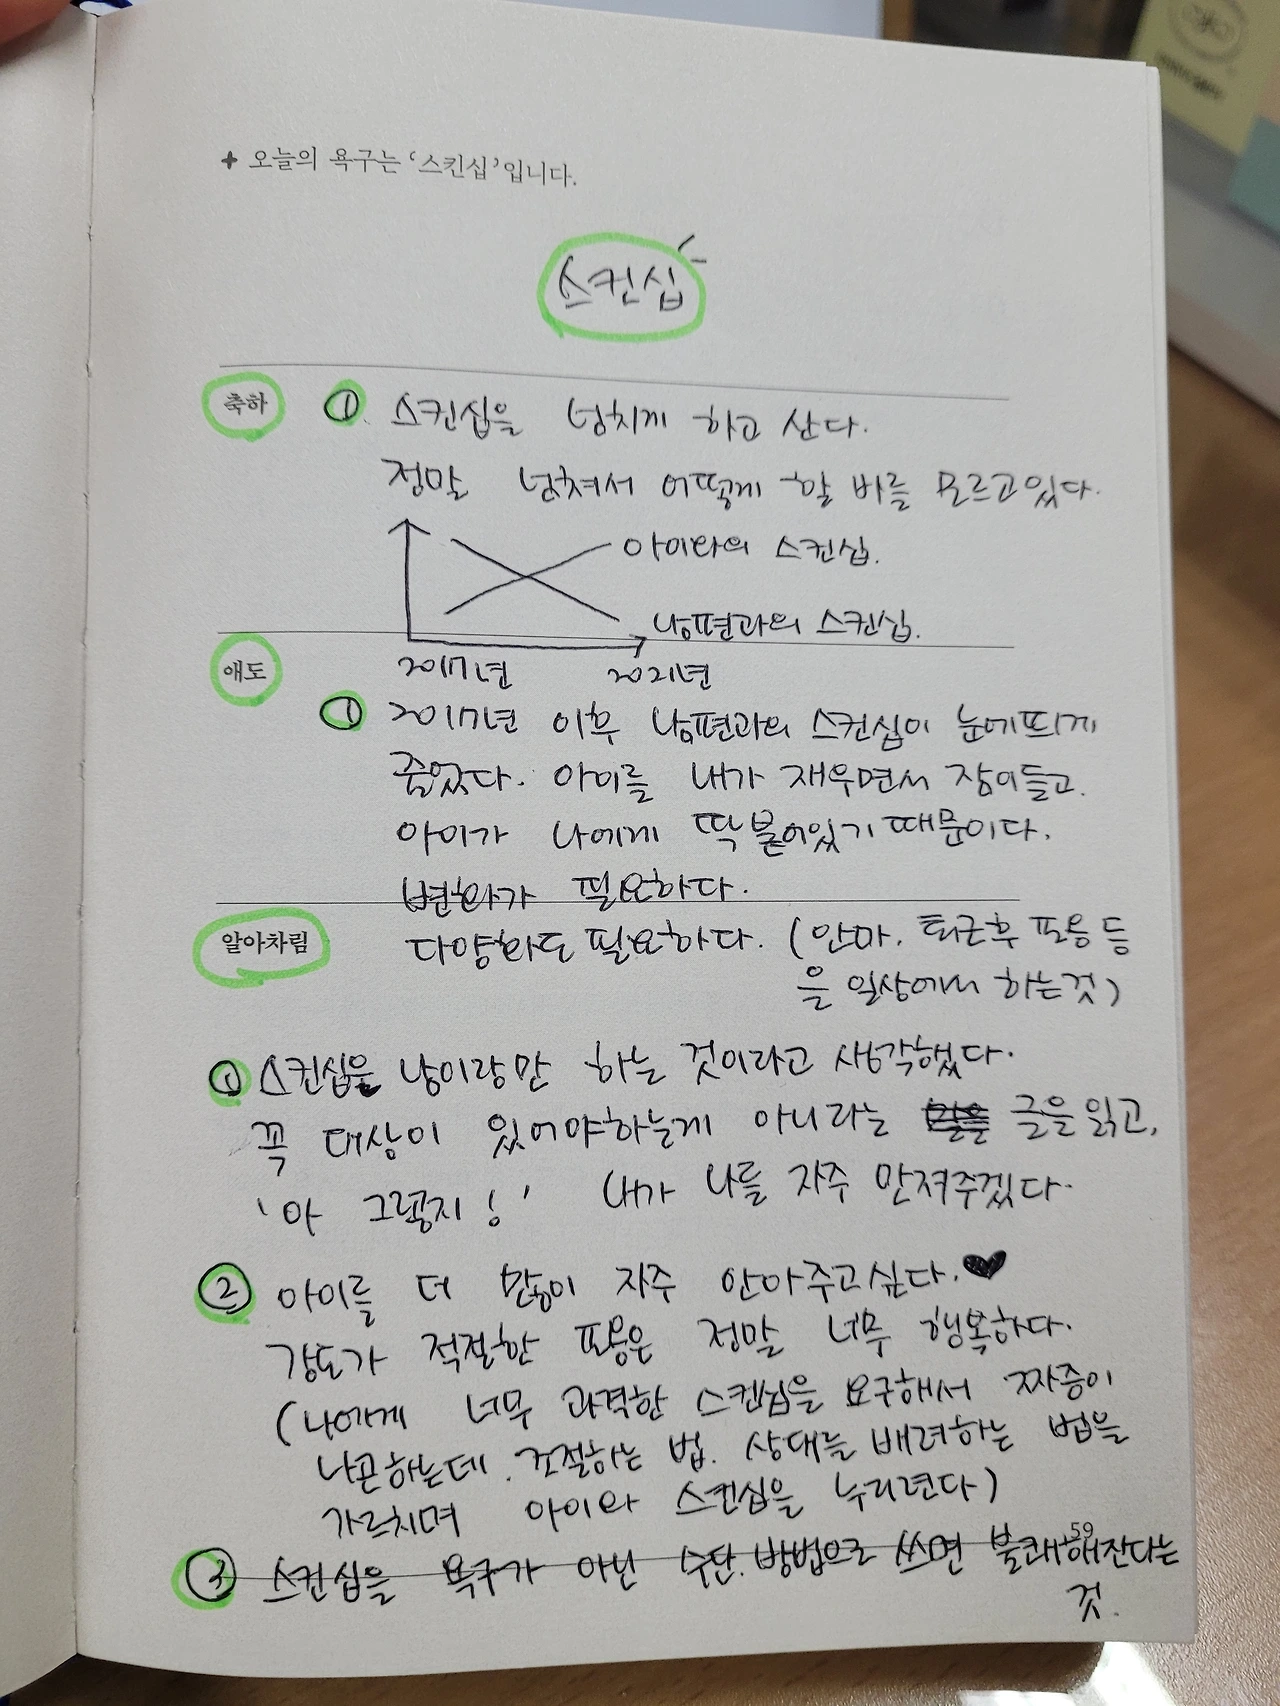 ✦ 오늘의 욕구는 ‘스킨십’입니다.
스킨십
축하
① 스킨십을 넘치게 하고 산다.
정말 넘쳐서 어떻게 할 바를 모르고있다.
아이와의 스킨십.
남편과의 스킨십.
2017년 2021년
애도
① 2017년 이후 남편과의 스킨십이 눈에띄게
줄었다. 아이를 내가 재우면서 잠이들고.
아이가 나에게 딱 붙어있기 때문이다.
변화가 필요하다.
알아차림
다양화도 필요하다. (안마, 퇴근후 포옹 등
을 일상에서 하는것)
① 스킨십을 남이랑만 하는 것이라고 생각했다.
꼭 대상이 있어야하는게 아니라는 글을 읽고,
'아 그렇지!' 내가 나를 자주 만져주겠다.
② 아이를 더 많이 자주 안아주고싶다. ♥
강도가 적절한 포옹은 정말 너무 행복하다.
(나에게 너무 과격한 스킨십을 요구해서 짜증이
나곤하는데. 조절하는 법. 상대를 배려하는 법을
가르치며 아이와 스킨십을 누리련다)
59
③ 스킨십을 욕구가 아닌 수단.방법으로 쓰면 불쾌해진다는
것.